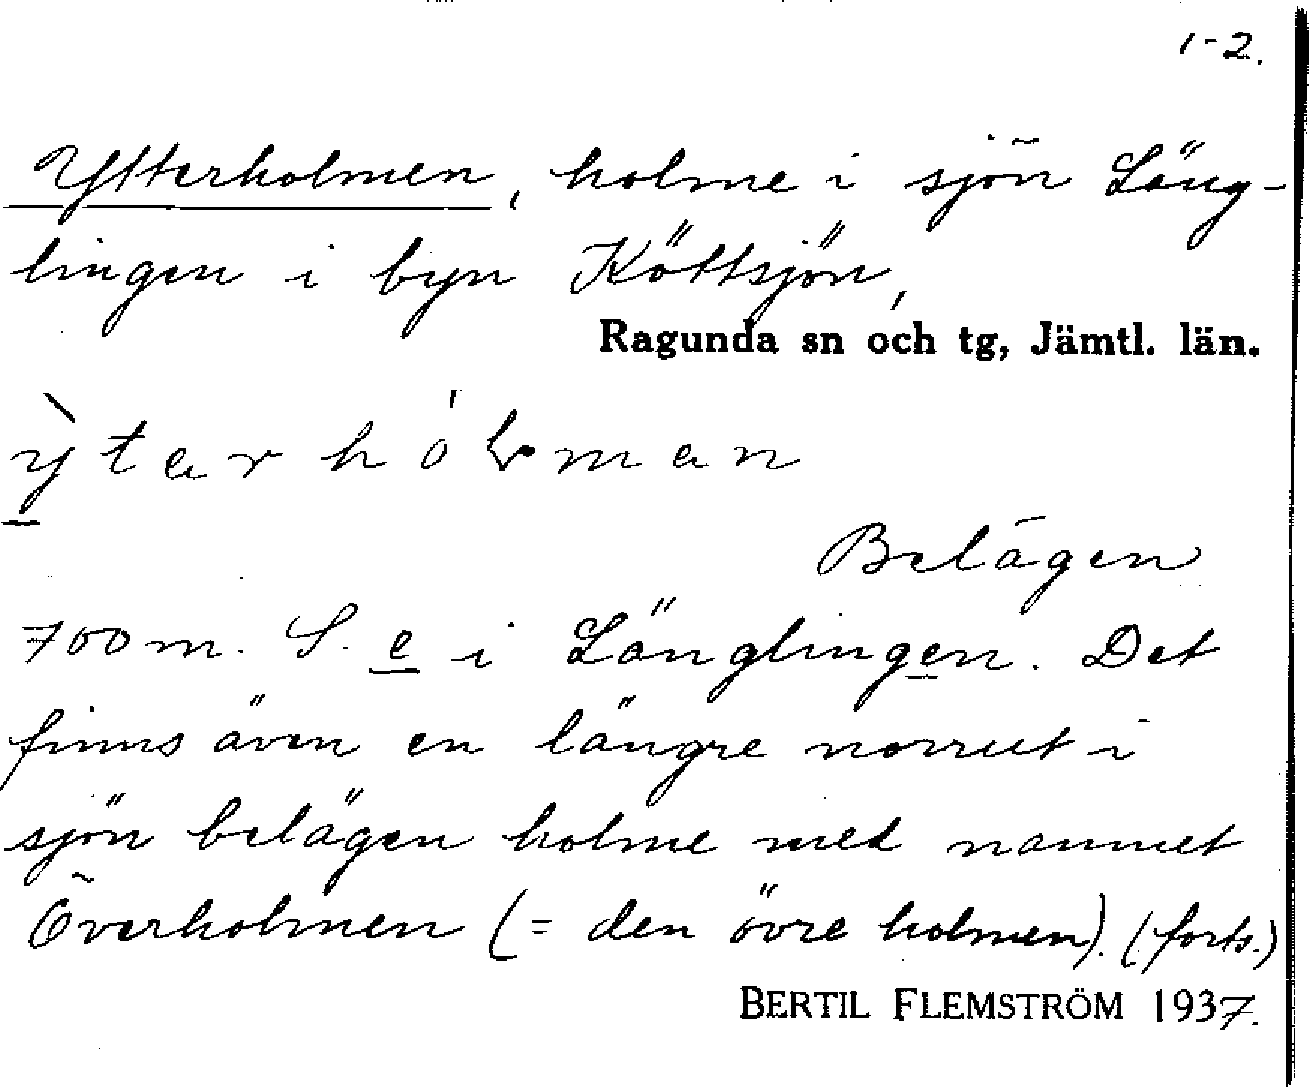 1-2.
Ytterholmen, holme i sjön Läng-
lingen i byn Köttsjön,
Ragunda sn och tg, Jämtl. län.
Belägen
700 m. S. e i Länglingen. Det
finns även en längre norrut i
sjön belägen holme med namnet
Överholmen (= den övre holmen). (forts.)
BERTIL FLEMSTRÖM 1937.